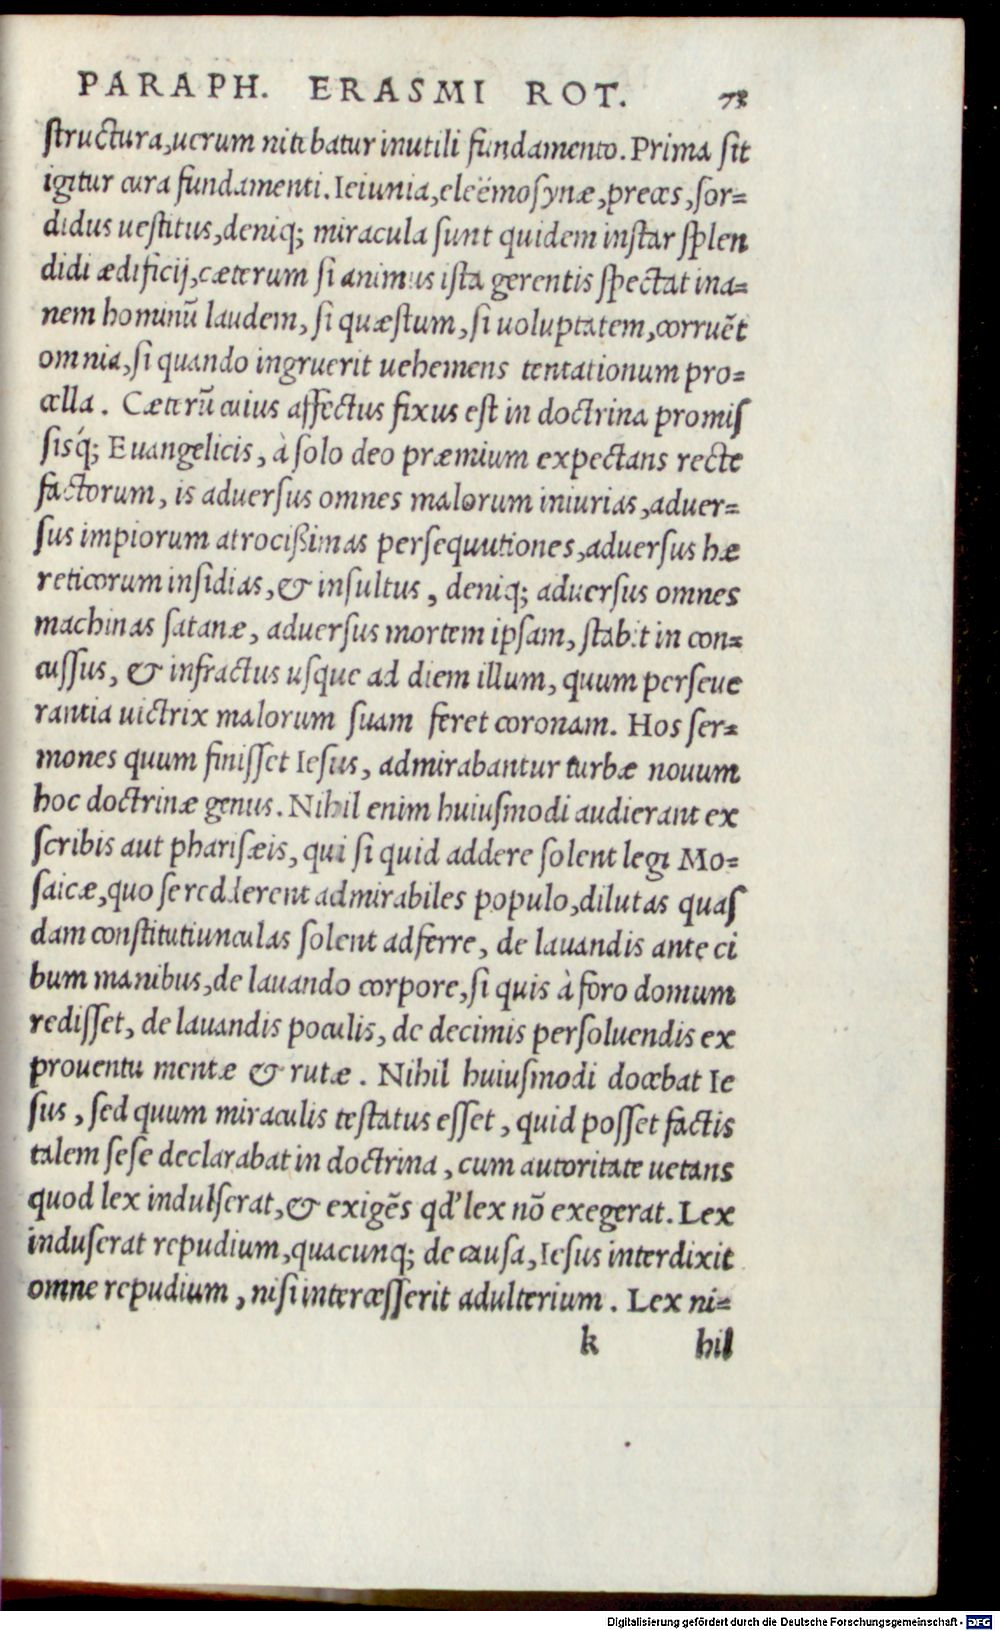 PARAPH. ERASMI ROT. 73
structura, uerum nitebatur inutili fundamento. Prima sit
igitur cura fundamenti. Ieiunia, eleëmosynæ, preces, sor=
didus uestitus, deniq; miracula sunt quidem instar splen
didi ædificij, cæterum si animus ista gerentis spectat ina=
nem hominũ laudem, si quæstum, si uoluptatem, corruẽt
omnia, si quando ingruerit uehemens tentationum pro=
cella. Cæterũ cuius affectus fixus est in doctrina promis
sisq́; Euangelicis, à solo deo præmium expectans recte
factorum, is aduersus omnes malorum iniurias, aduer=
sus impiorum atrocißimas persequutiones, aduersus hæ
reticorum insidias, & insultus, deniq; aduersus omnes
machinas satanæ, aduersus mortem ipsam, stabit in con=
cussus, & infractus usque ad diem illum, quum perseue
rantia uictrix malorum suam feret coronam. Hos ser=
mones quum finisset Iesus, admirabantur turbæ nouum
hoc doctrinæ genus. Nihil enim huiusmodi audierant ex
scribis aut pharisæis, qui si quid addere solent legi Mo=
saicæ, quo se redderent admirabiles populo, dilutas quas
dam constitutiunculas solent adferre, de lauandis ante ci
bum manibus, de lauando corpore, si quis à foro domum
redisset, de lauandis poculis, de decimis persoluendis ex
prouentu mentæ & rutæ. Nihil huiusmodi docebat Ie
sus, sed quum miraculis testatus esset, quid posset factis
talem sese declarabat in doctrina, cum autoritate uetans
quod lex indulserat, & exigẽs qd' lex nõ exegerat. Lex
induserat repudium, quacunq; de causa, Iesus interdixit
omne repudium, nisi intercesserit adulterium. Lex ni=
k hil
Digitalisierung gefördert durch die Deutsche Forschungsgemeinschaft - DFG